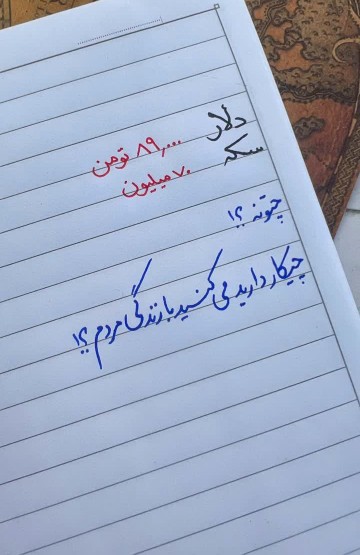 دلار ۸۹,۰۰۰ تومن
سکه ۷۰ میلیون
چتونه ؟!
چیکار دارید می کنید با زندگی مردم ؟!